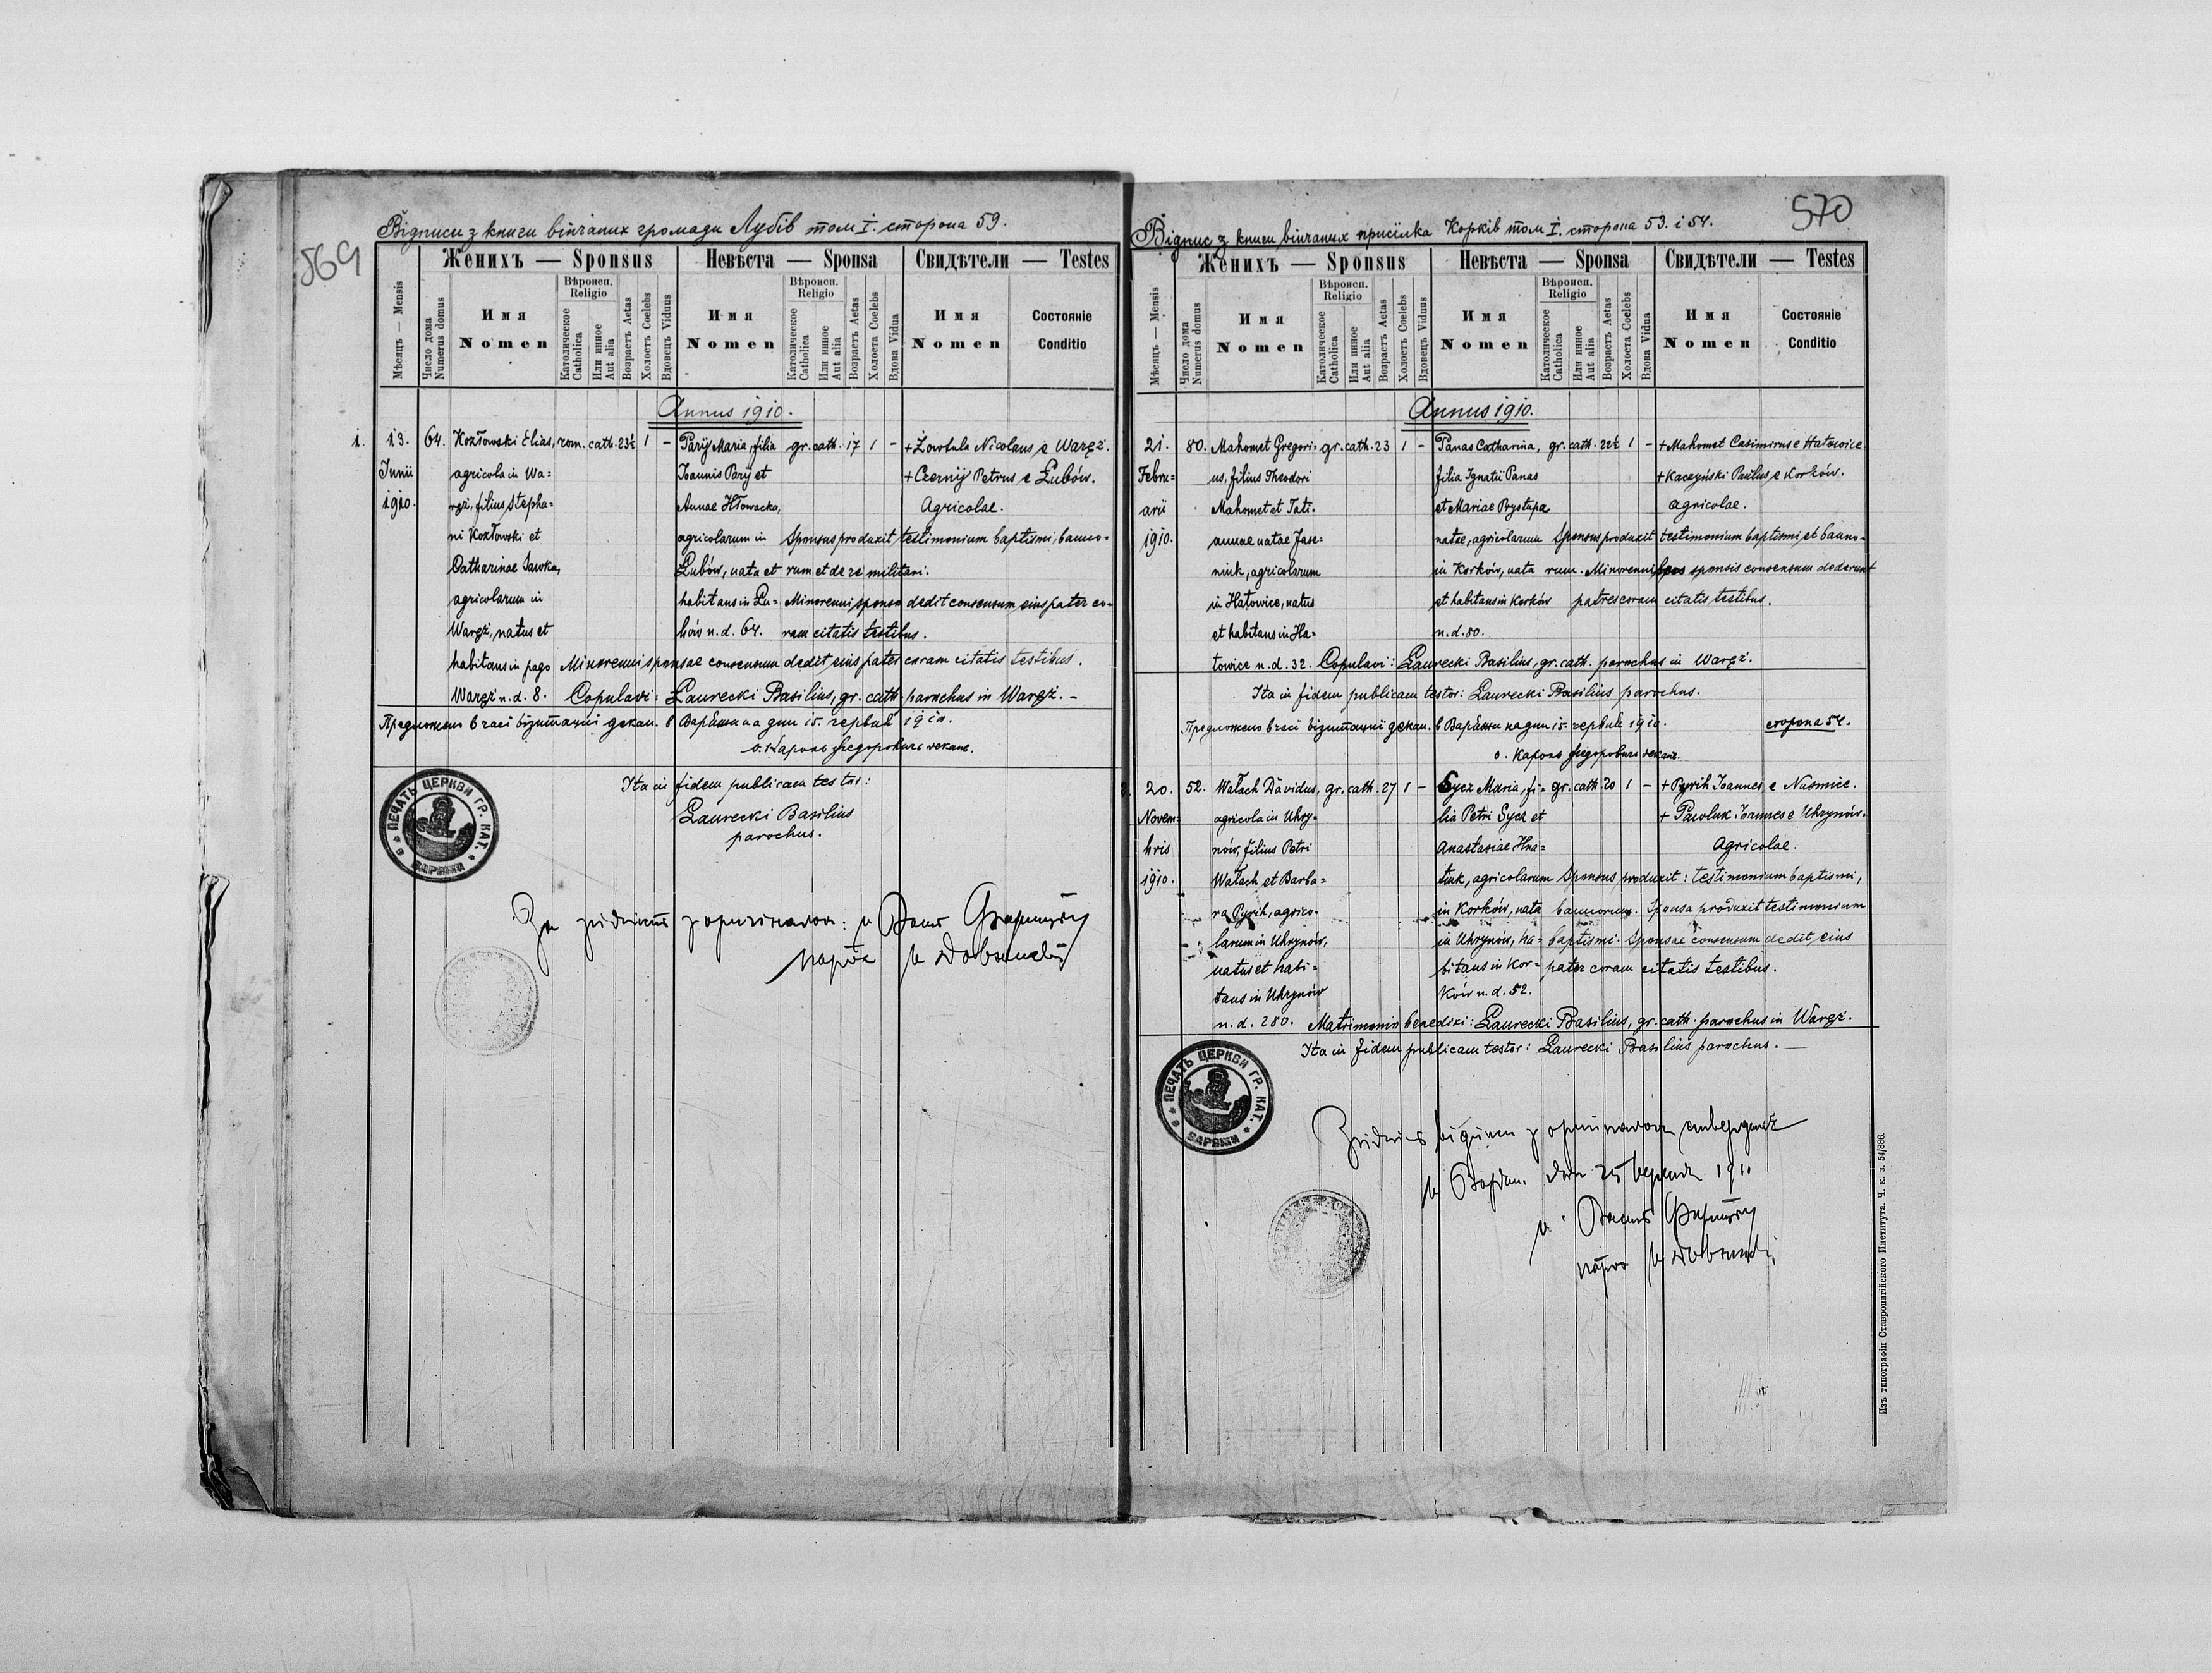 569
Відписи з книги вінчаних громади Лубів том I. сторона 59.
Мѣсяцъ — Mensis
Число дома Numerus domus
Женихъ — Sponsus
Имя Nomen
Вѣроисп. Religio
Католическое Catholica
Или инное Aut alia
Возрастъ Aetas
Холостъ Coelebs
Вдовецъ Viduus
Невѣста — Sponsa
Имя Nomen
Вѣроисп. Religio
Католическое Catholica
Или инное Aut alia
Возрастъ Aetas
Холоста Coelebs
Вдова Vidua
Свидѣтели — Testes
Имя Nomen
Состояніе Conditio
Annus 1910.
1. 13. 64. Kozłowski Elias, rom. cath. 23½ 1 – Paryj Maria, filia gr. cath. 17 1 – + Żowtula Nicolaus e Waręż.
Junii agricola in Wa= Ioannis Paryj et + Czernij Petrus e Łubów.
1910. ręż, filius Stepha= Annae Hłowacka, Agricolae.
ni Kozłowski et agricolarum in Sponsus produxit testimonium baptismi, banno=
Catharinae Sawka, Łubów, nata et rum et de re militari.
agricolarum in habitans in Łu= Minorenni sponso dedit consensum eius pater co=
Waręż, natus et bów n. d. 64. ram citatis testibus.
habitans in pago Minorenni sponsae consensum dedit eius pater coram citatis testibus.
Waręż n. d. 8. Copulavi: Ławrecki Basilius, gr. cath. parochus in Waręż. –
Предложено в часі візитациї декан. в Варяжи на дни 15. червня 1910.
о. Кароль Федорович декан.
Ita in fidem publicam testor:
Ławrecki Basilius
parochus.
ПЕЧАТЬ ЦЕРКВИ ГР. КАТ. В ВАРЯЖИ
570
Відпис з книги вінчаних присілка Корків том I. сторона 53. і 54.
Мѣсяцъ — Mensis
Число дома Numerus domus
Женихъ — Sponsus
Имя Nomen
Вѣроисп. Religio
Католическое Catholica
Или инное Aut alia
Возрастъ Aetas
Холостъ Coelebs
Вдовецъ Viduus
Невѣста — Sponsa
Имя Nomen
Вѣроисп. Religio
Католическое Catholica
Или инное Aut alia
Возрастъ Aetas
Холоста Coelebs
Вдова Vidua
Свидѣтели — Testes
Имя Nomen
Состояніе Conditio
Annus 1910.
21. 80. Mahomet Gregori= gr. cath. 23 1 – Panas Catharina, gr. cath. 22½ 1 – + Mahomet Casimirus e Hatowice.
Febru= us, filius Theodori filia Ignatii Panas + Kaczyński Paulus e Korków.
arii Mahomet et Tati= et Mariae Prystupa agricolae.
1910. annae natae Jase= natae, agricolarum Sponsus produxit testimonium baptismi, et banno=
niuk, agricolarum in Korków, nata rum. Minorennibus sponsis consensum dederunt
in Hatowice, natus et habitans in Korków patres coram citatis testibus.
et habitans in Ha= n. d. 80.
towice n. d. 32. Copulavi: Ławrecki Basilius, gr. cath. parochus in Waręż.
Ita in fidem publicam testor: Ławrecki Basilius parochus.
Предложено в часі візитациї декан. в Варяжи на дни 15. червня 1910. сторона 54.
о. Кароль Федорович декан.
2. 20. 52. Wałach Davidus, gr. cath. 27 1 – Sycz Maria, fi= gr. cath. 20 1 – + Pyrih Ioannes e Nusmice.
Novem= agricola in Uhry= lia Petri Sycz et + Pawluk Ioannes e Uhrynów.
bris nów, filius Petri Anastasiae Hna= Agricolae.
1910. Wałach et Barba= tiuk, agricolarum Sponsus produxit: testimonium baptismi,
ra Pyrih, agrico= in Korków, nata bannorum. Sponsa produxit testimonium
larum in Uhrynów, in Uhrynów, ha= baptismi. Sponsae consensum dedit eius
natus et habi= bitans in Kor= pater coram citatis testibus.
tans in Uhrynów ków n. d. 52.
n. d. 280. Matrimonio benedixi: Ławrecki Basilius, gr. cath. parochus in Waręż.
Ita in fidem publicam testor: Ławrecki Basilius parochus. —
ПЕЧАТЬ ЦЕРКВИ ГР. КАТ. В ВАРЯЖИ
Изъ типографіи Ставропигійского Института. Ч. к. з. 54/886.